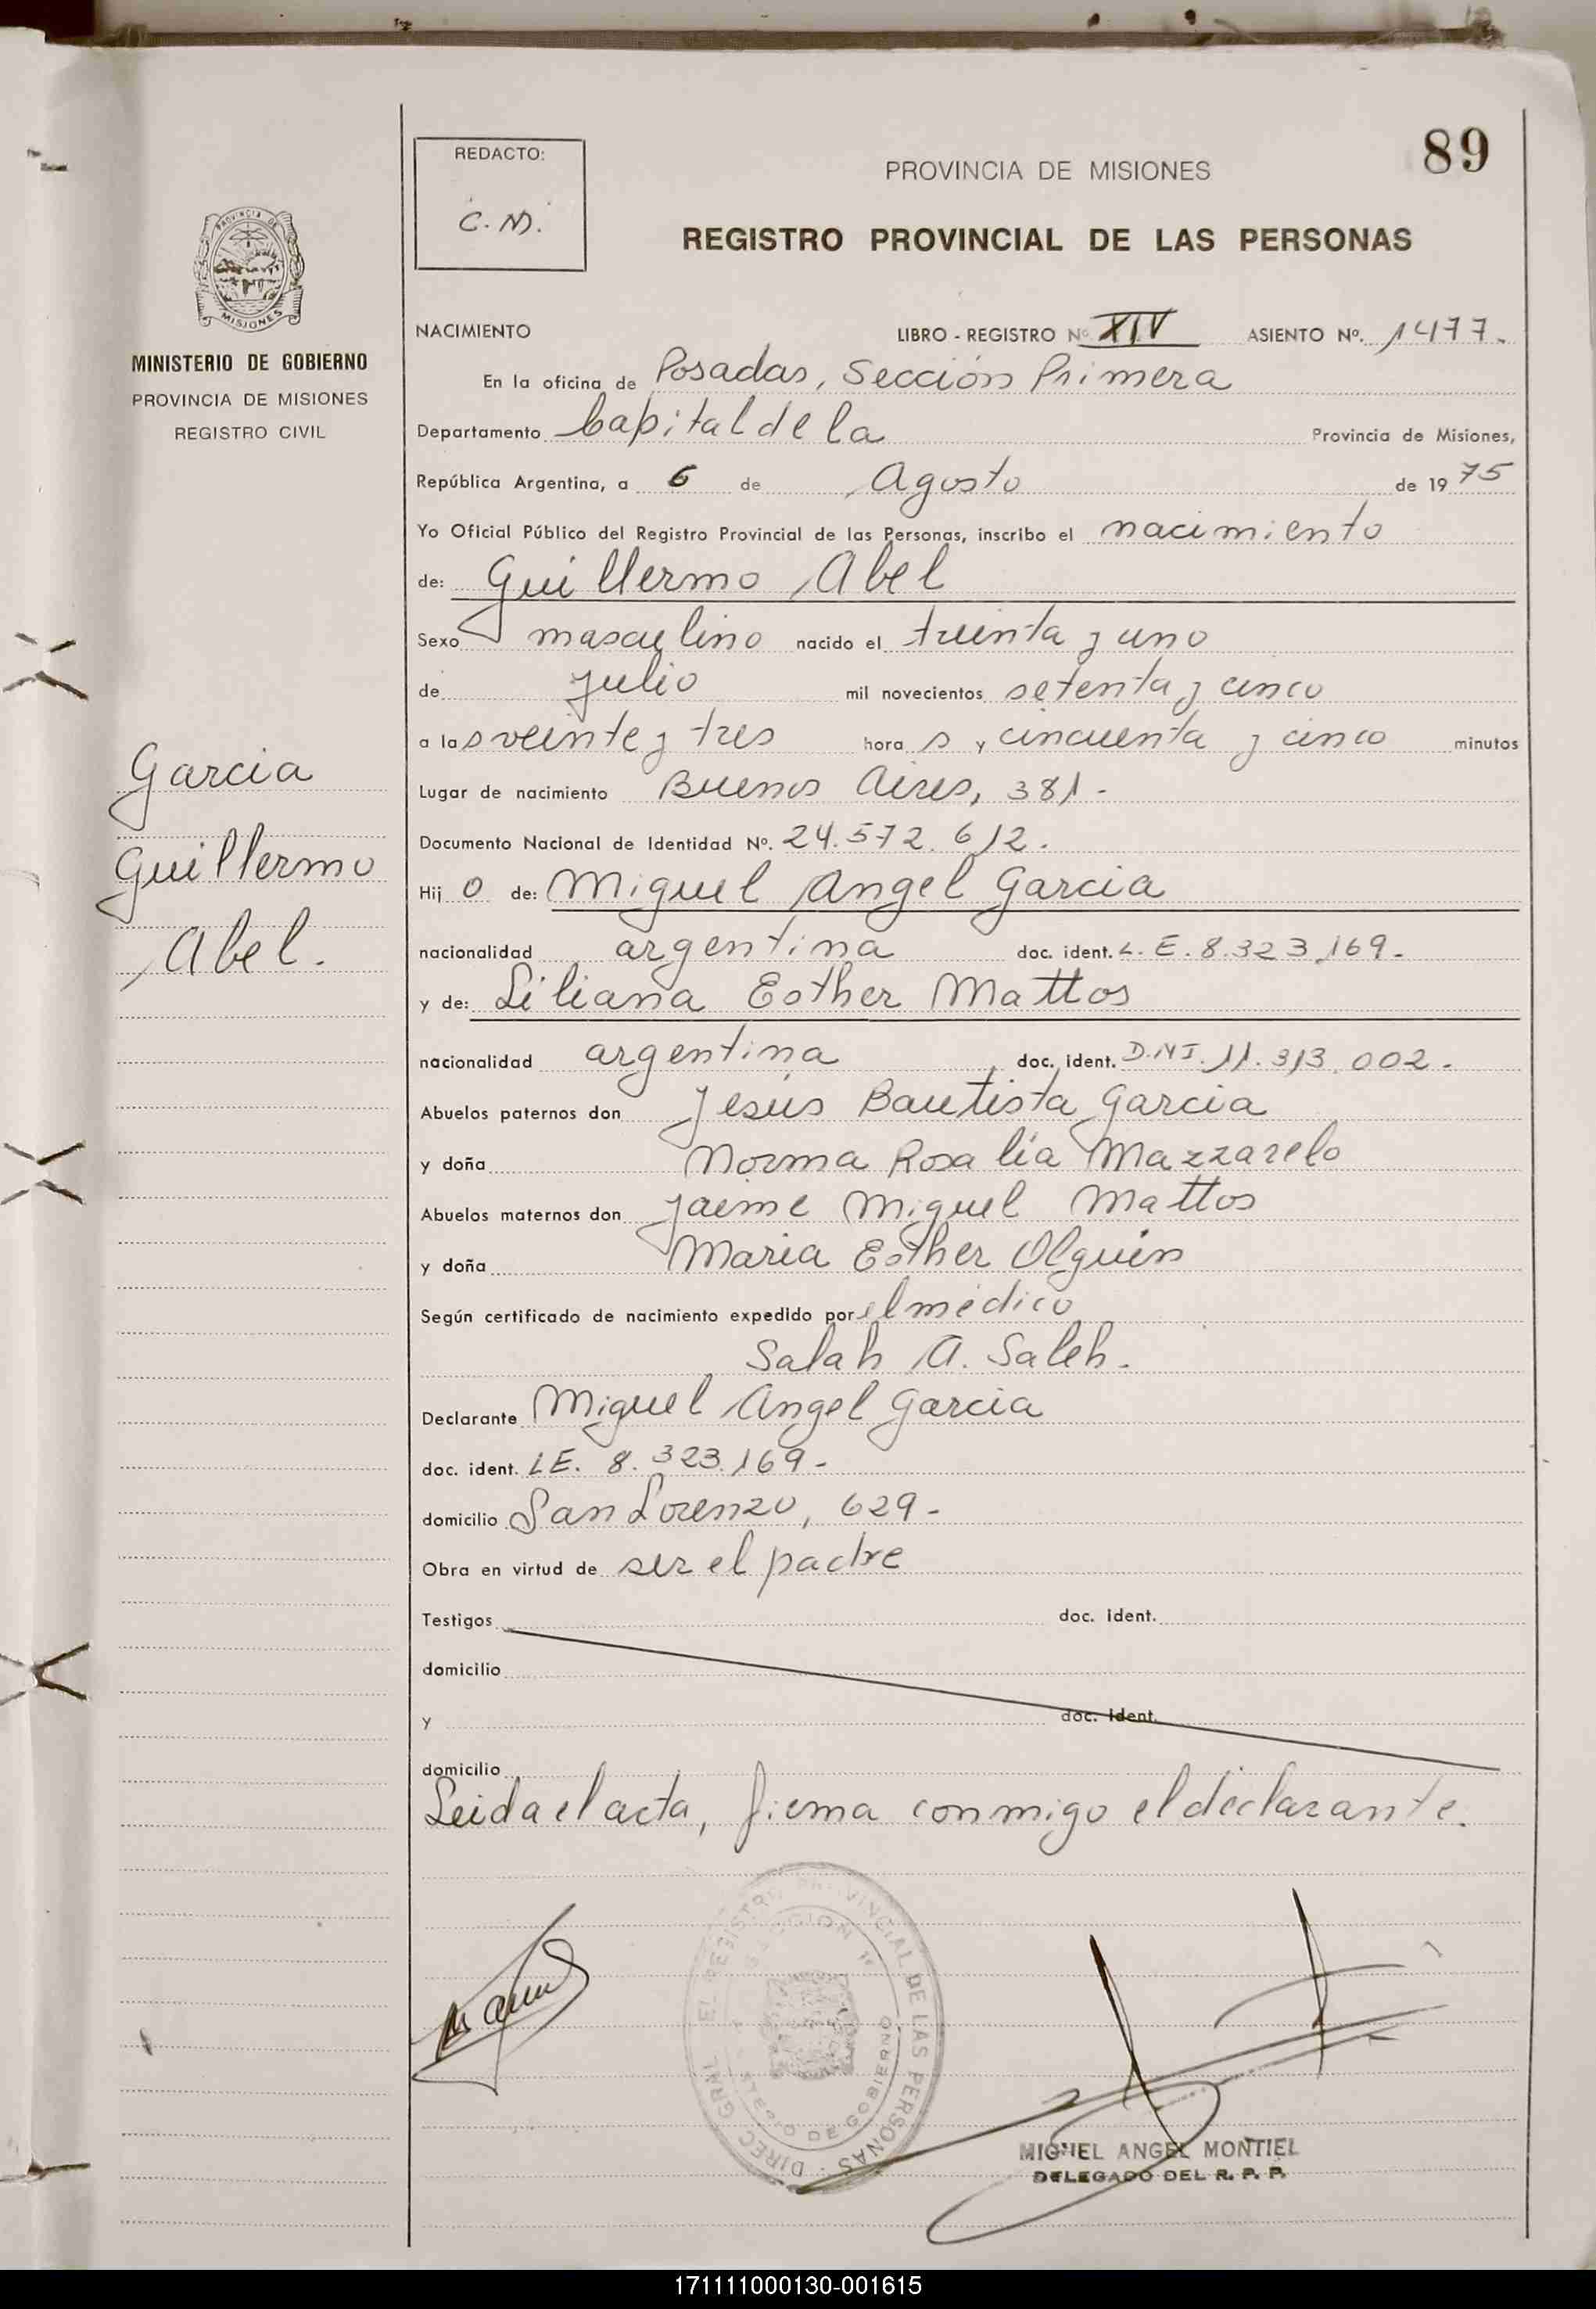 89
REDACTO:
C. M.
PROVINCIA DE MISIONES
REGISTRO PROVINCIAL DE LAS PERSONAS
PROVINCIA DE
MISIONES
MINISTERIO DE GOBIERNO
PROVINCIA DE MISIONES
REGISTRO CIVIL
Garcia
Guillermo
Abel.
NACIMIENTO LIBRO - REGISTRO Nº XIV ASIENTO Nº. 1477.
En la oficina de Posadas, Sección Primera
Departamento Capital de la Provincia de Misiones,
República Argentina, a 6 de Agosto de 19 75
Yo Oficial Público del Registro Provincial de las Personas, inscribo el nacimiento
de: Guillermo Abel
Sexo masculino nacido el treinta y uno
de julio mil novecientos setenta y cinco
a las veinte y tres hora s y cincuenta y cinco minutos
Lugar de nacimiento Buenos Aires, 381-
Documento Nacional de Identidad Nº. 24.572.612.
Hij o de: Miguel Angel Garcia
nacionalidad argentina doc. ident. L.E. 8.323.169-
y de: Liliana Esther Mattos
nacionalidad argentina doc. ident. D.N.I. 11.313.002-
Abuelos paternos don Jesús Bautista Garcia
y doña Norma Rosalía Mazzarelo
Abuelos maternos don Jaime Miguel Mattos
y doña Maria Esther Olguin
Según certificado de nacimiento expedido por el médico
Salah A. Saleh.
Declarante Miguel Angel Garcia
doc. ident. LE. 8.323.169-
domicilio San Lorenzo, 629-
Obra en virtud de ser el padre
Testigos doc. ident.
domicilio
y doc. ident.
domicilio
Leida el acta, firma conmigo el declarante.
DIREC. GRAL. EL REGISTRO PROVINCIAL DE LAS PERSONAS
DE GOBIERNO
MIGUEL ANGEL MONTIEL
DELEGADO DEL R. P. P.
171111000130-001615